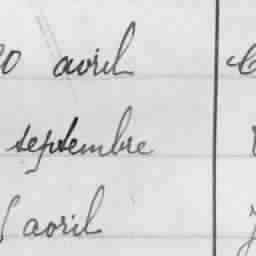 avril
septembre
avril